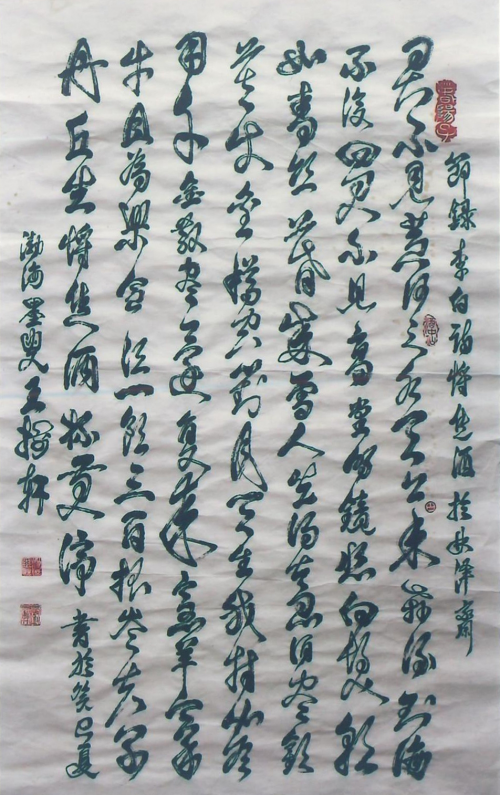 節錄李白詩將進酒於澤齋
君不見黃河之水天上來奔流到海
不復回君不見高堂明鏡悲白髮朝
如青絲暮成雪人生得意須盡歡
莫使金樽空對月天生我材必有
用千金散盡還復來烹羊宰
牛且為樂會須一飲三百杯岑夫子
丹丘生將進酒杯莫停 書於癸巳夏
渤海墨叟王軒